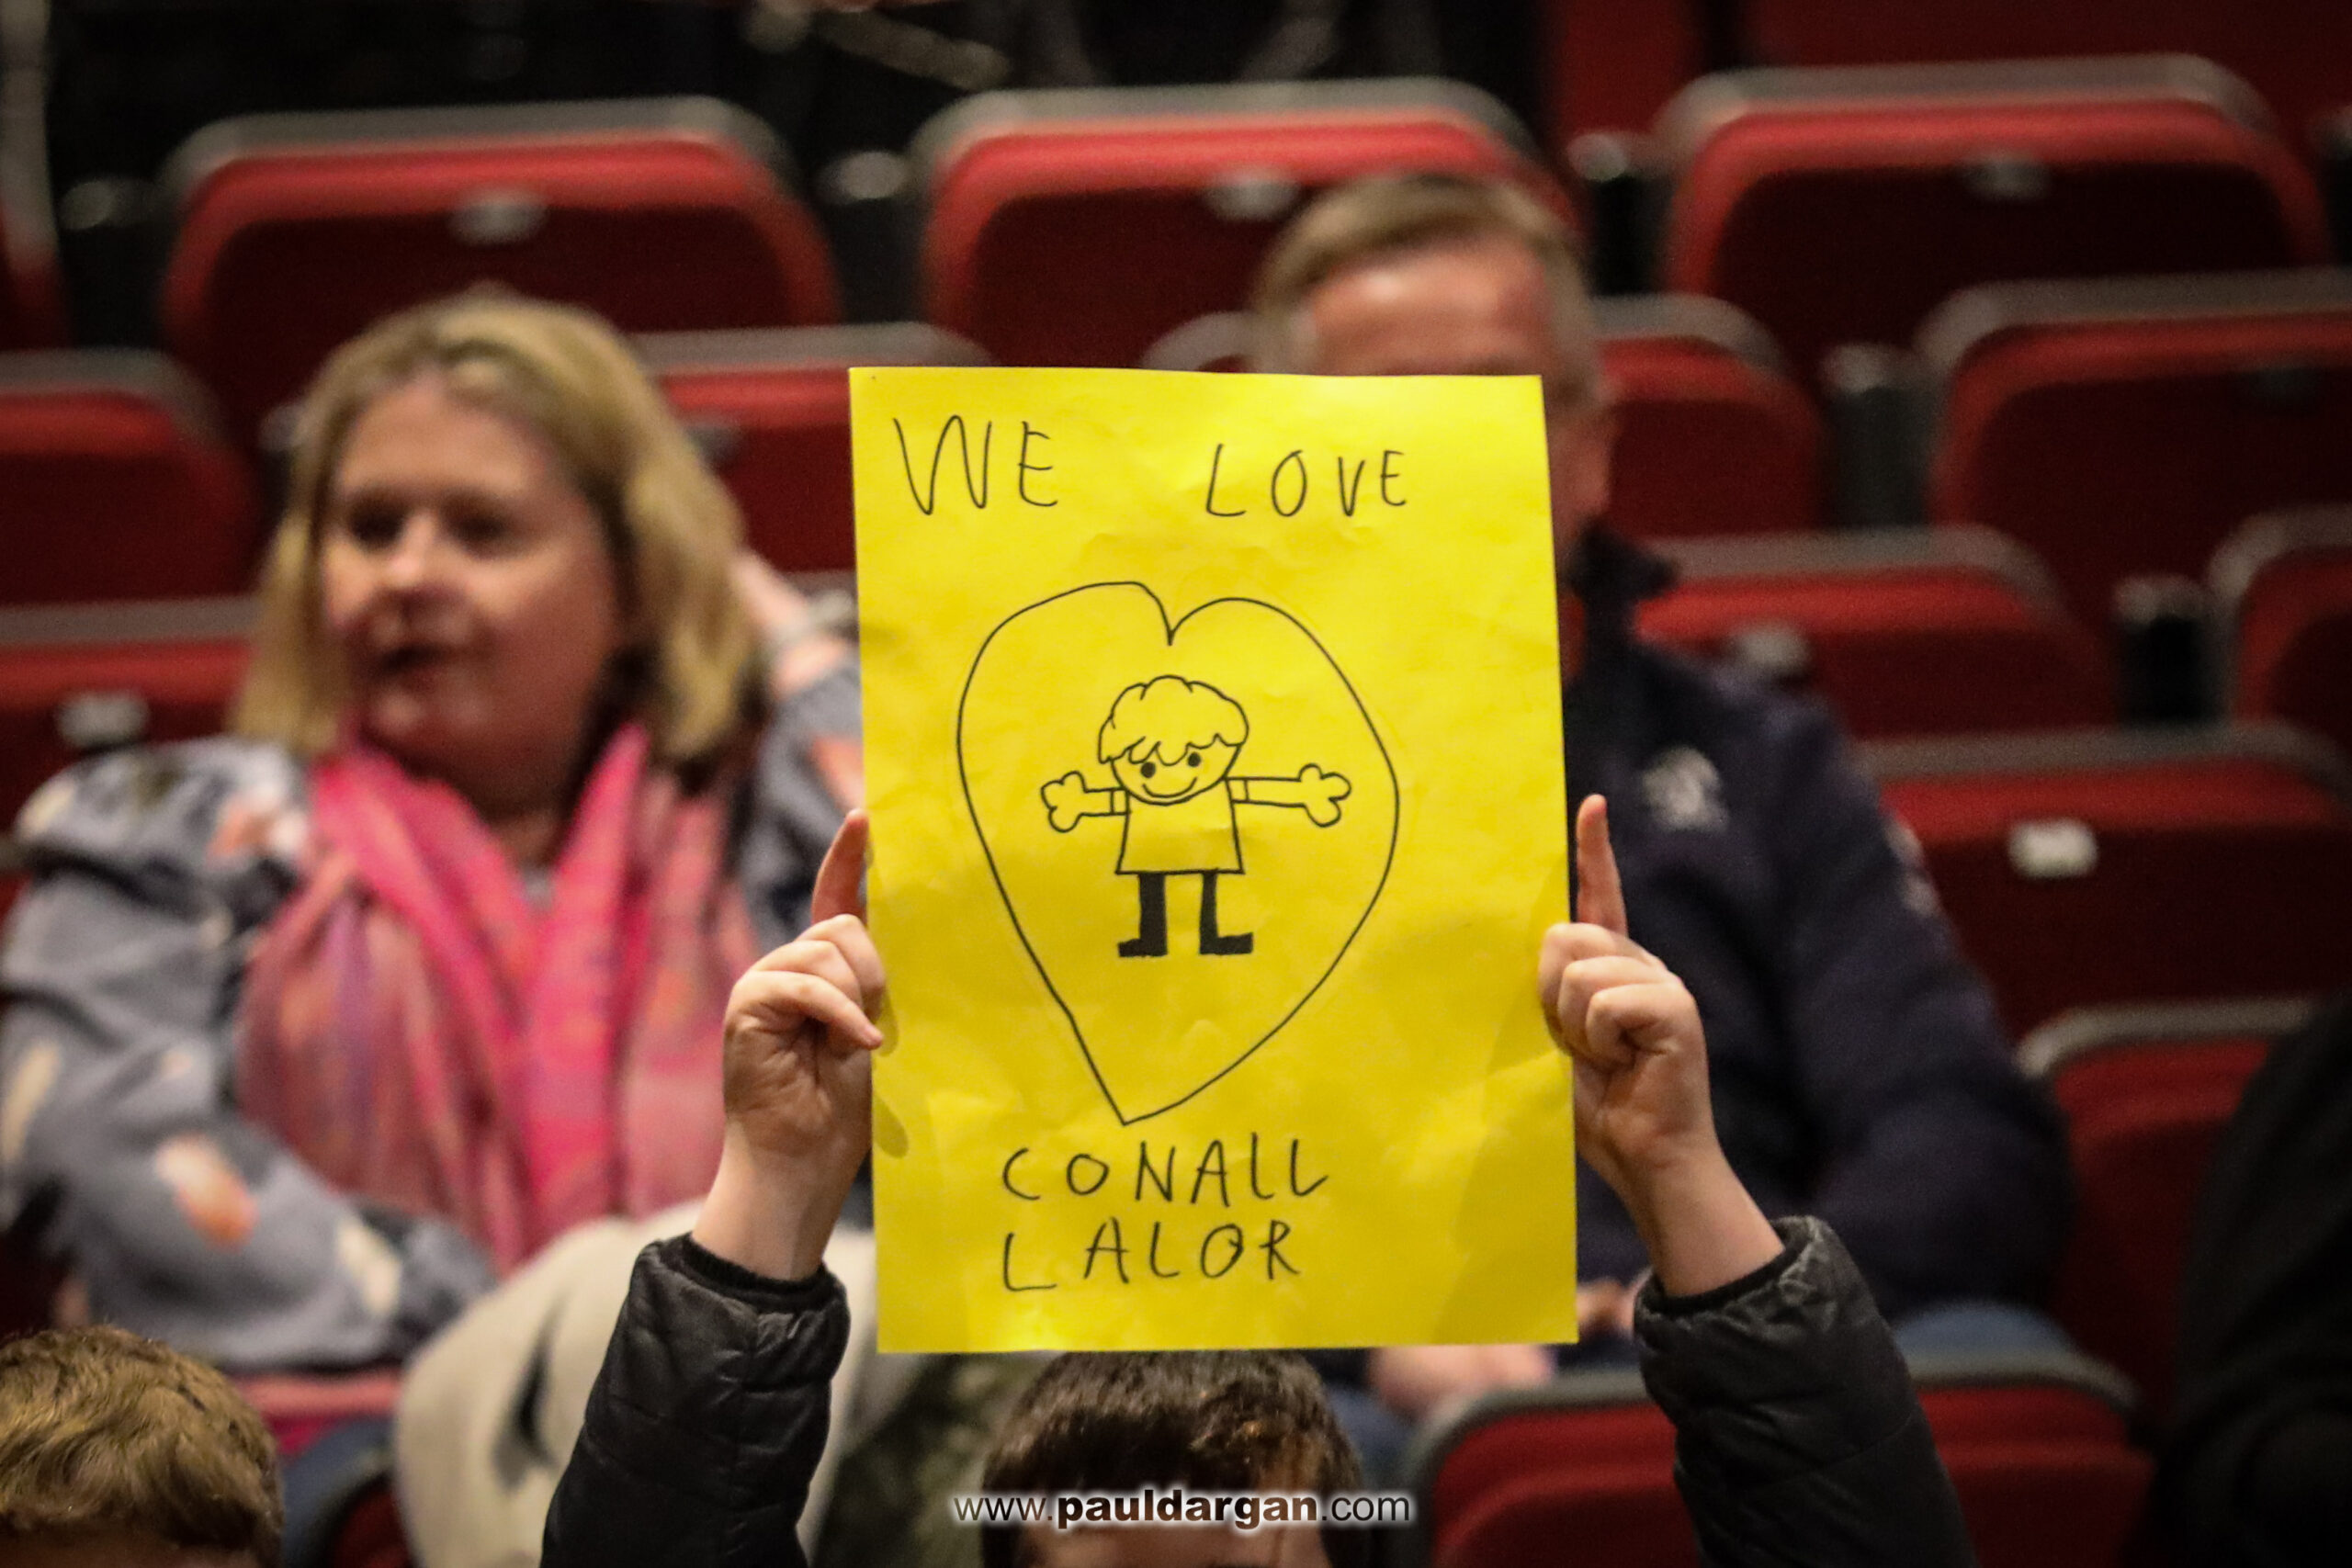 WE LOVE
CONALL
LALOR
www.pauldargan.com